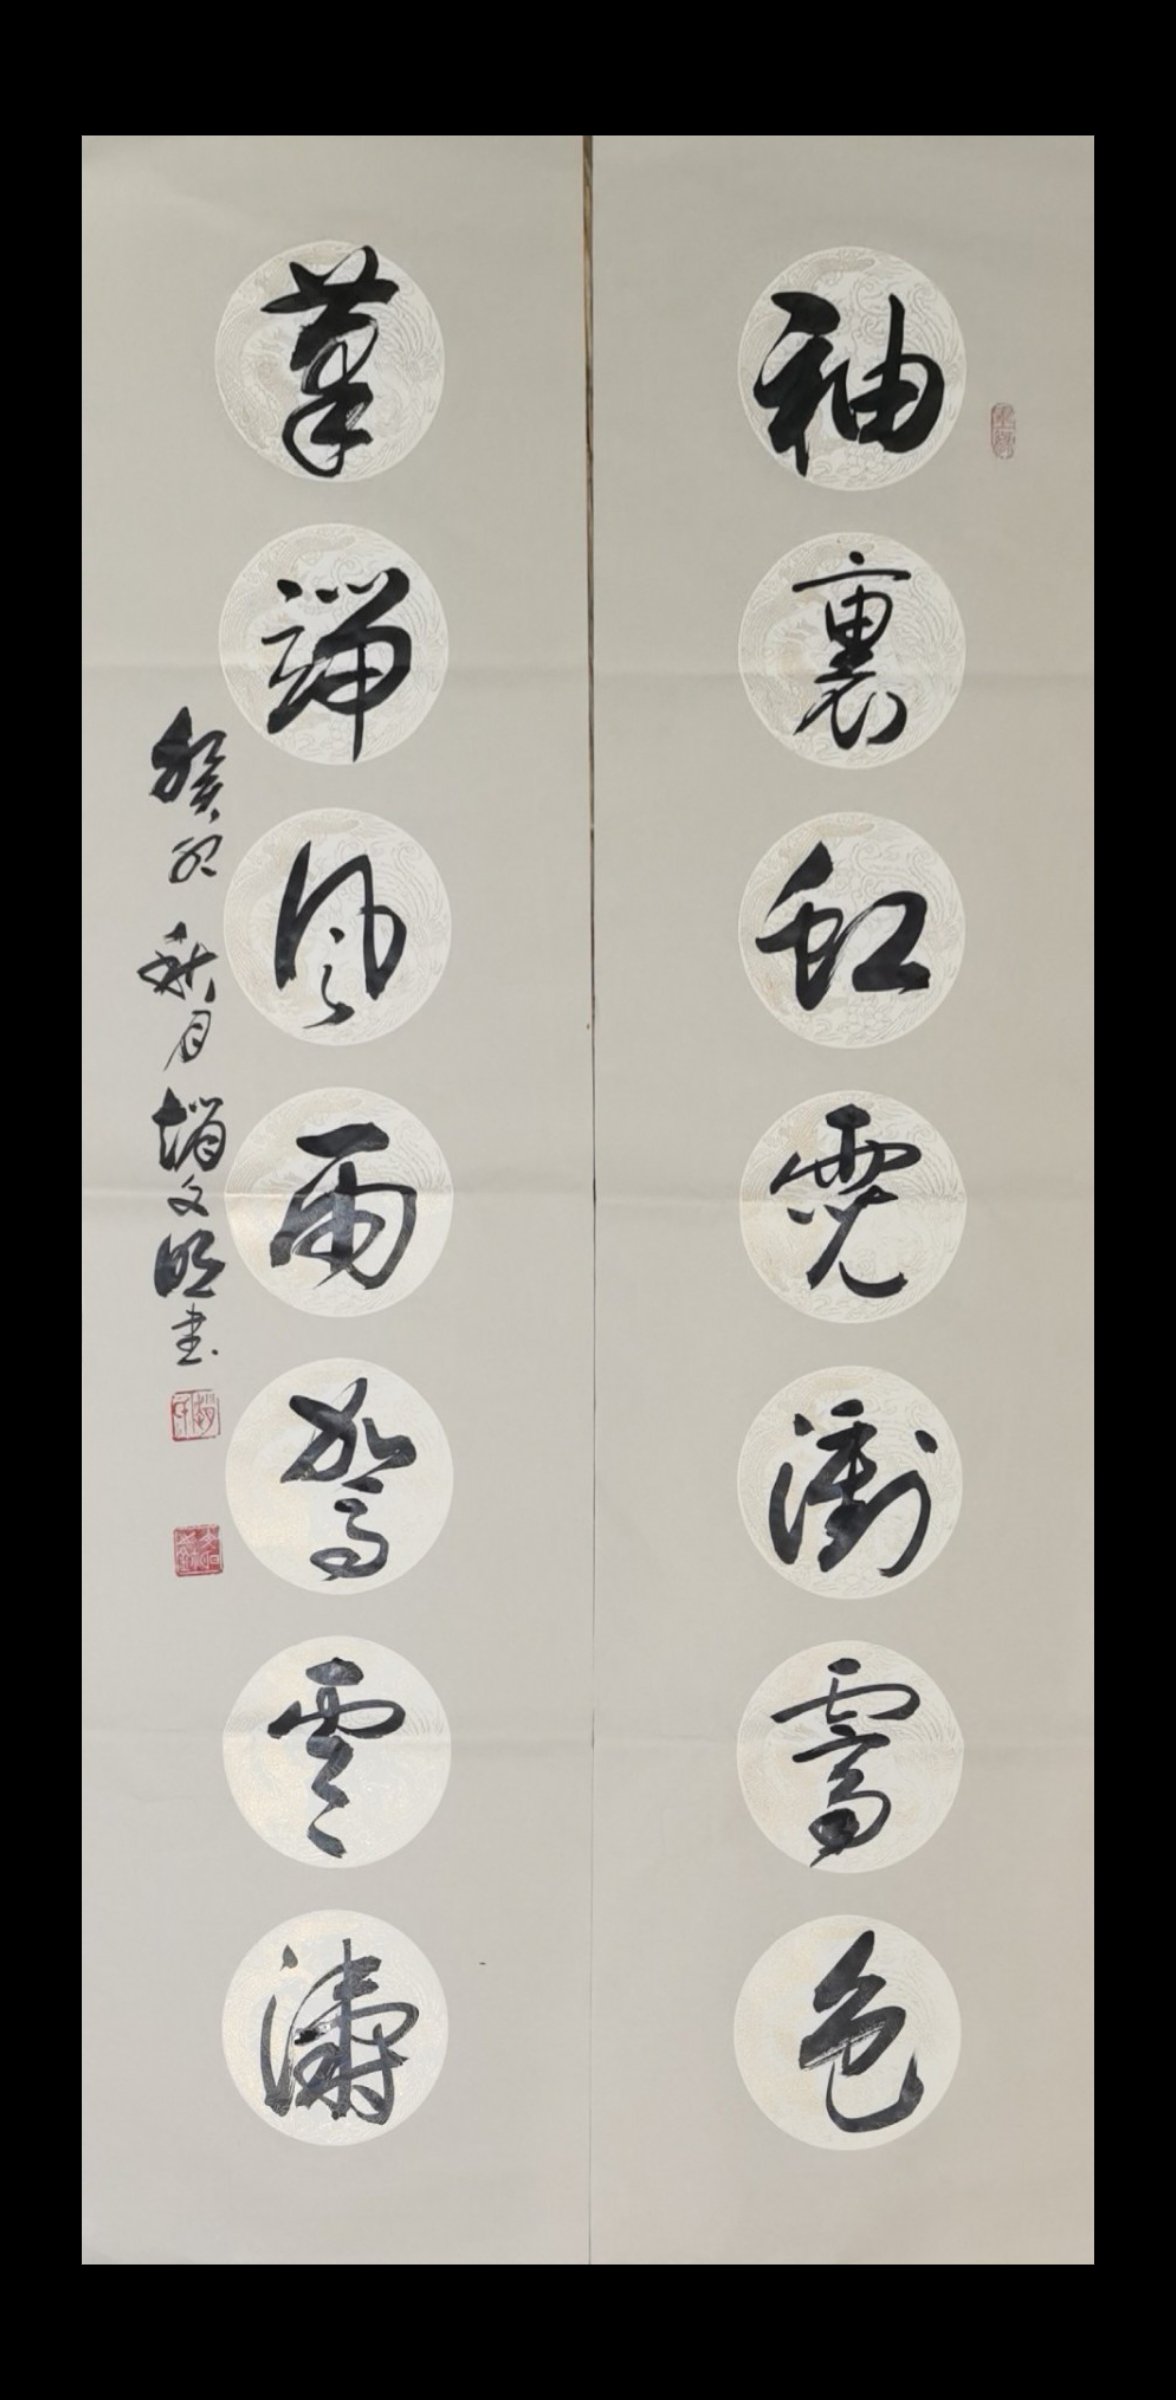 袖裏虹霓衝霽色
筆端風雨驚雲濤
癸卯秋月趙文明書